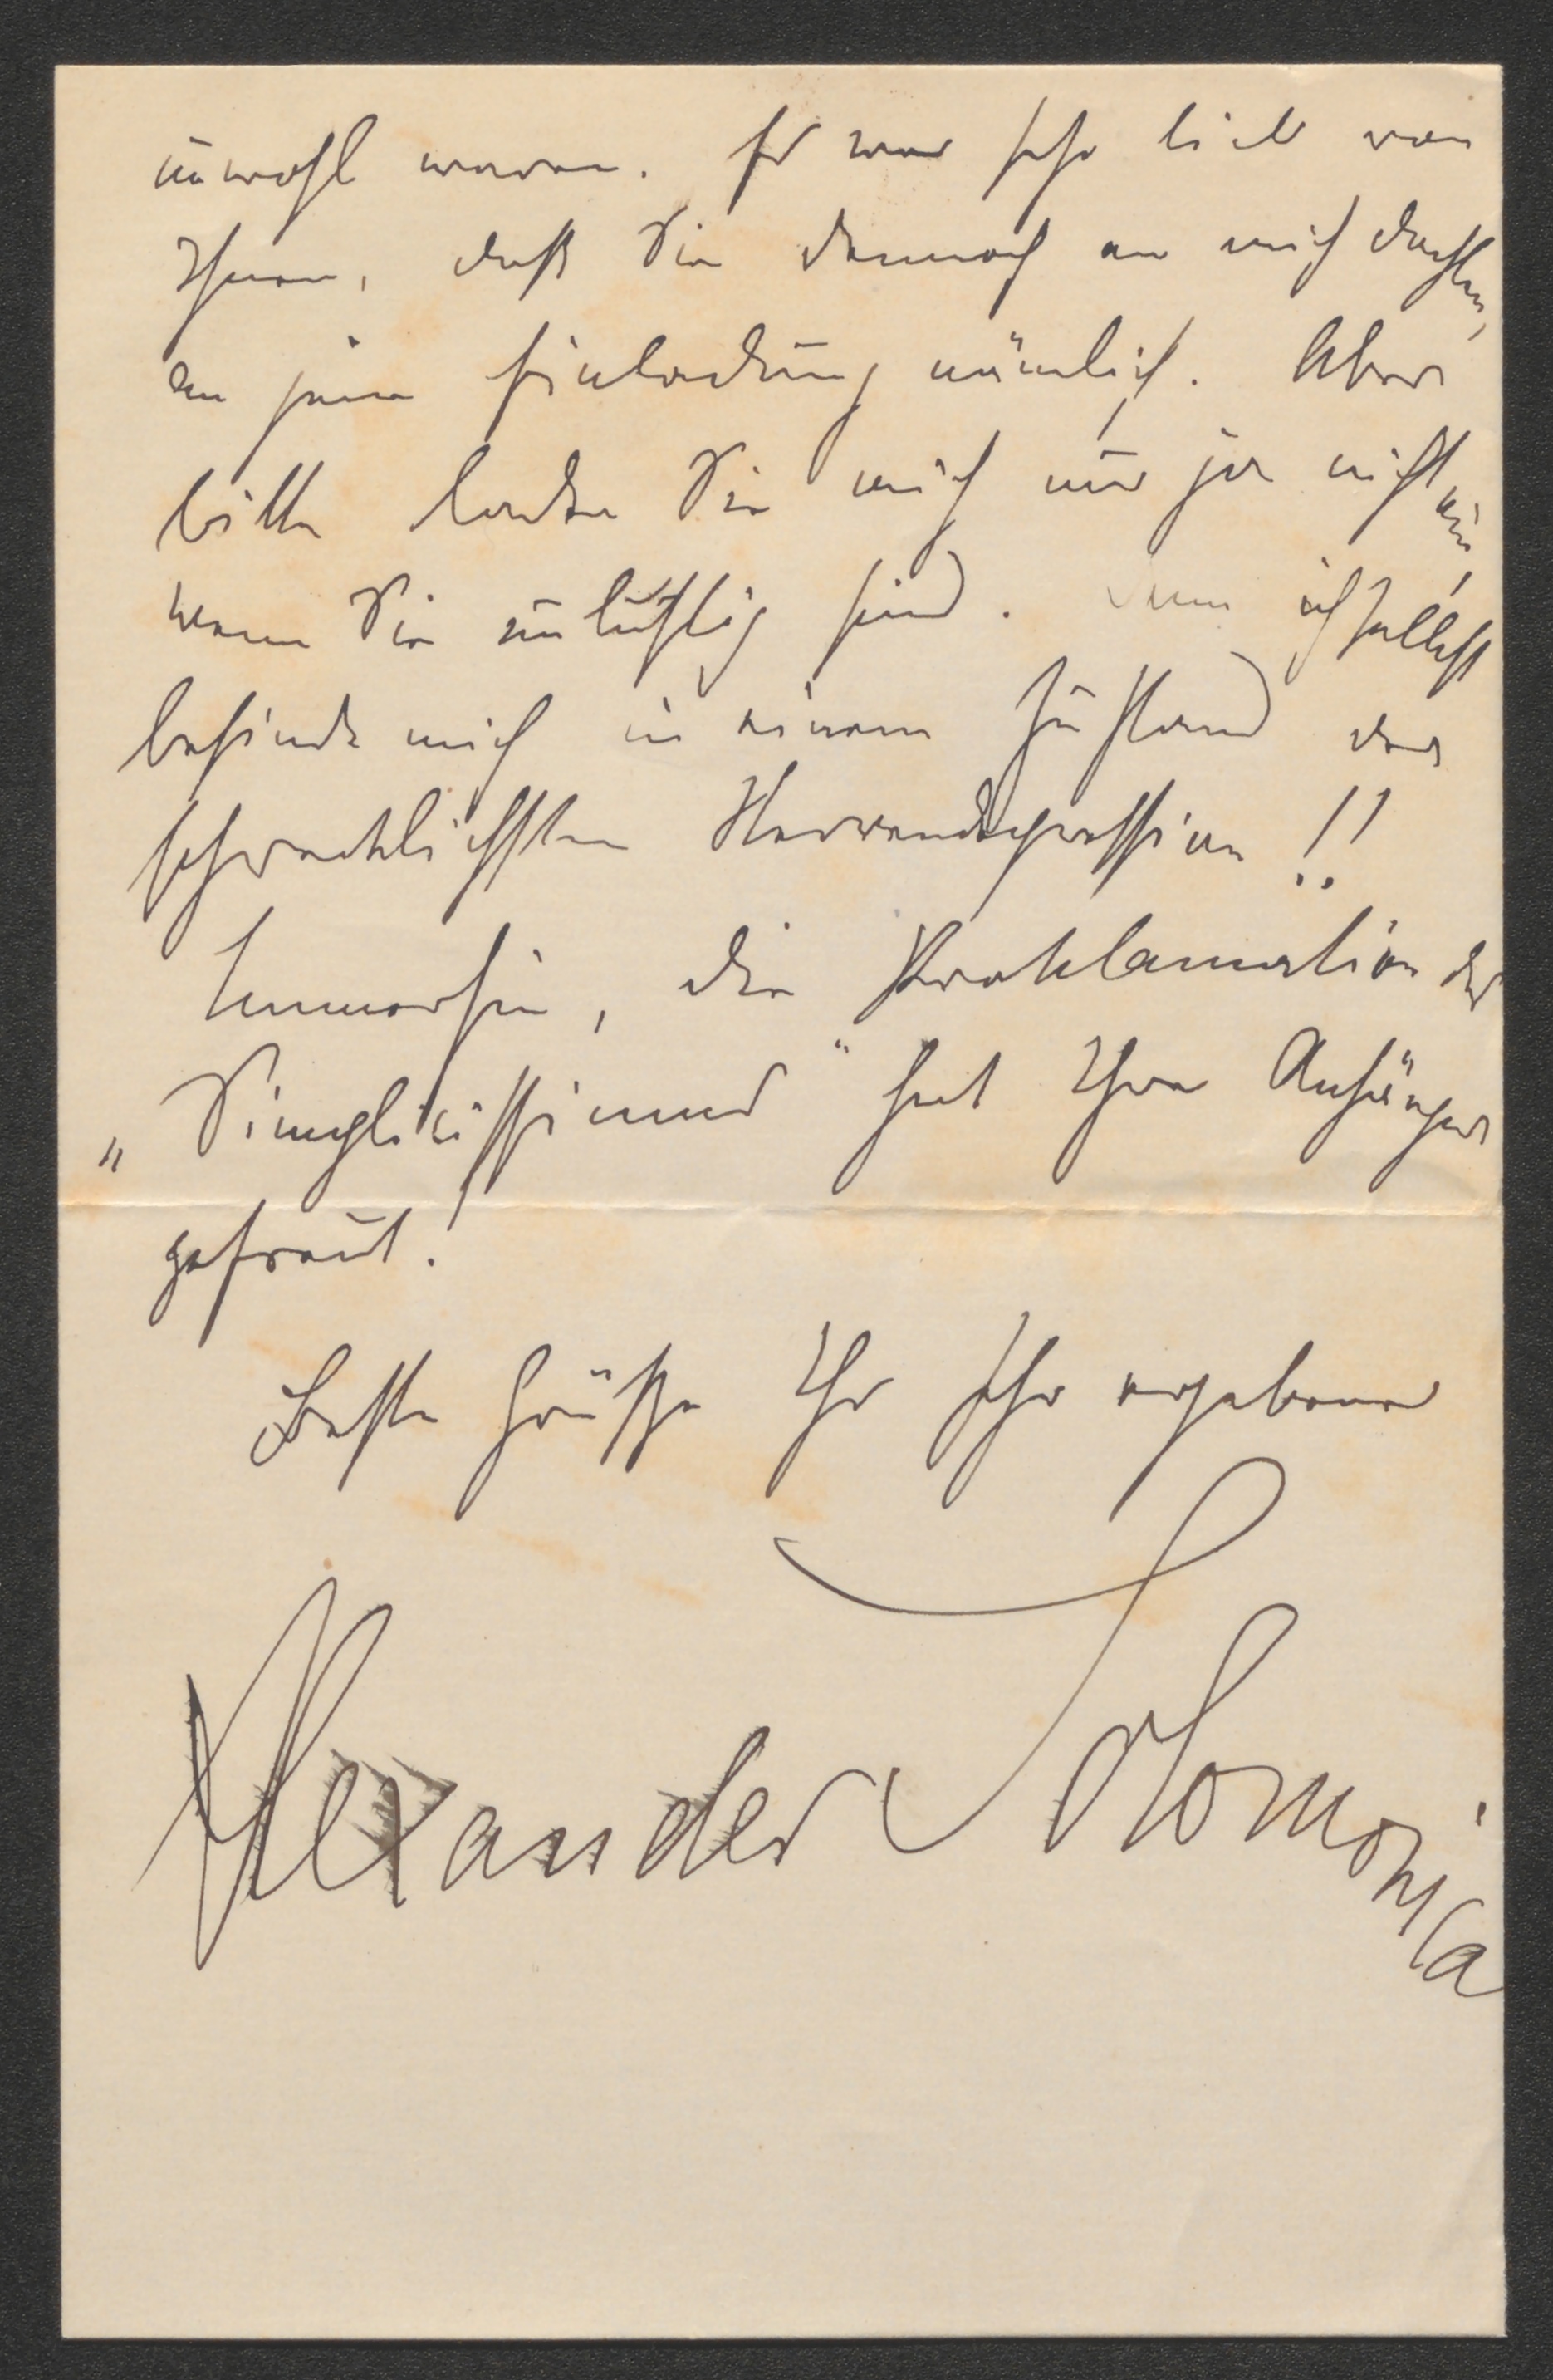 unwohl waren. Es war sehr lieb von
Ihnen, daß Sie dennoch an mich dachten,
an jene Einladung nämlich. Aber
bitte laden Sie mich nur ja nicht ein,
wenn Sie unlustig sind. Denn ich selbst
befinde mich in einem Zustand der
schrecklichsten Nervendepression!!
Immerhin, die Proklamation des
„Simplicissimus“ hat Ihre Anhänger
gefreut!
Beste Grüsse Ihr sehr ergebener
Alexander Solomonica